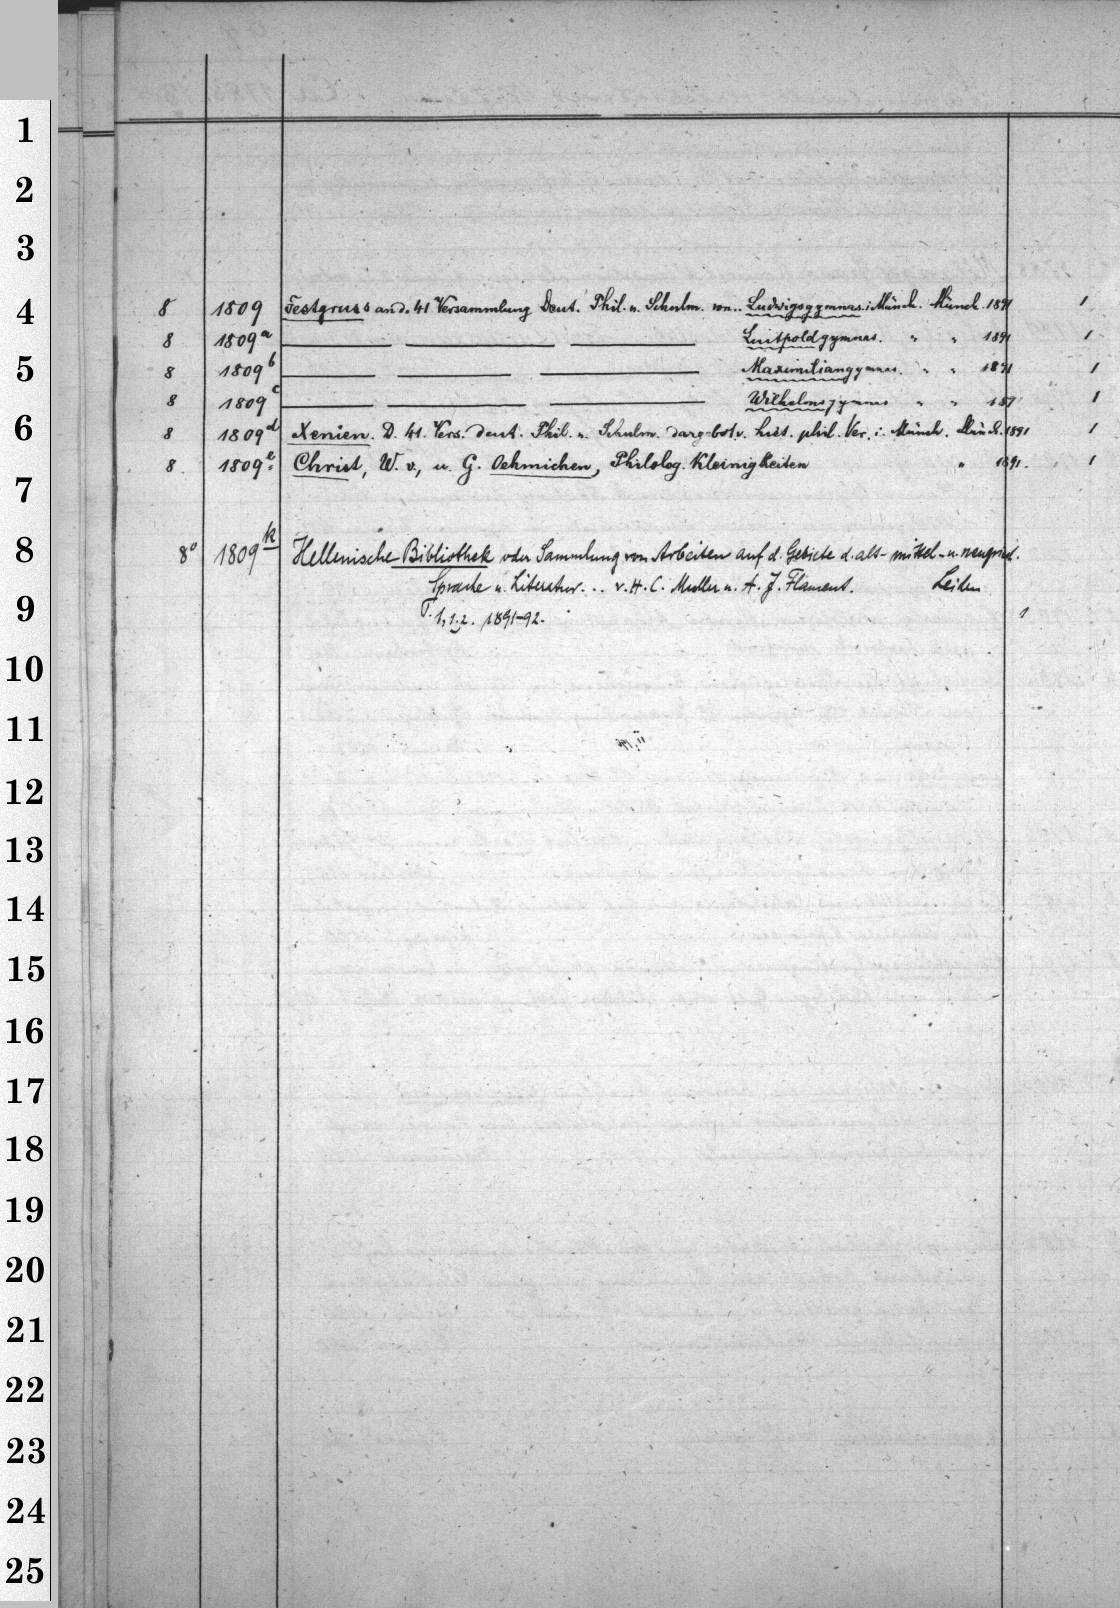 1
2
3
4
5
6
7
8
9
10
11
12
13
14
15
16
17
18
19
20
21
22
23
24
25
8 1809 Festgruss an d. 41 Versammlung Deut. Phil. u. Schulm. von.. Ludwigsgymnas. i. Münch. Münch. 1891 1
8 1809a Luitpoldgymnas. " " 1891 1
8 1809b Maximiliangymnas. " " 1891 1
8 1809c Wilhelmsgymnas " " 1
8 1809d Xenien. D. 41. Vers. deut. Phil. u. Schulm. darg-bot v. hist. phil. Ver. i. Münch. Münch. 1891 1
8. 1809e. Christ, W. v., u. G. Oehmichen, Philolog. Kleinigkeiten " 1891. 1
8° 1809k Hellenische Bibliothek oder Sammlung von Arbeiten auf d. Gebiete d. alt- mittel- u. neugried.
Sprache u. Literatur... v. H. C. Muller u. A. J. Flament. Leiden
T. 1, 1.2. 1891-92. 1